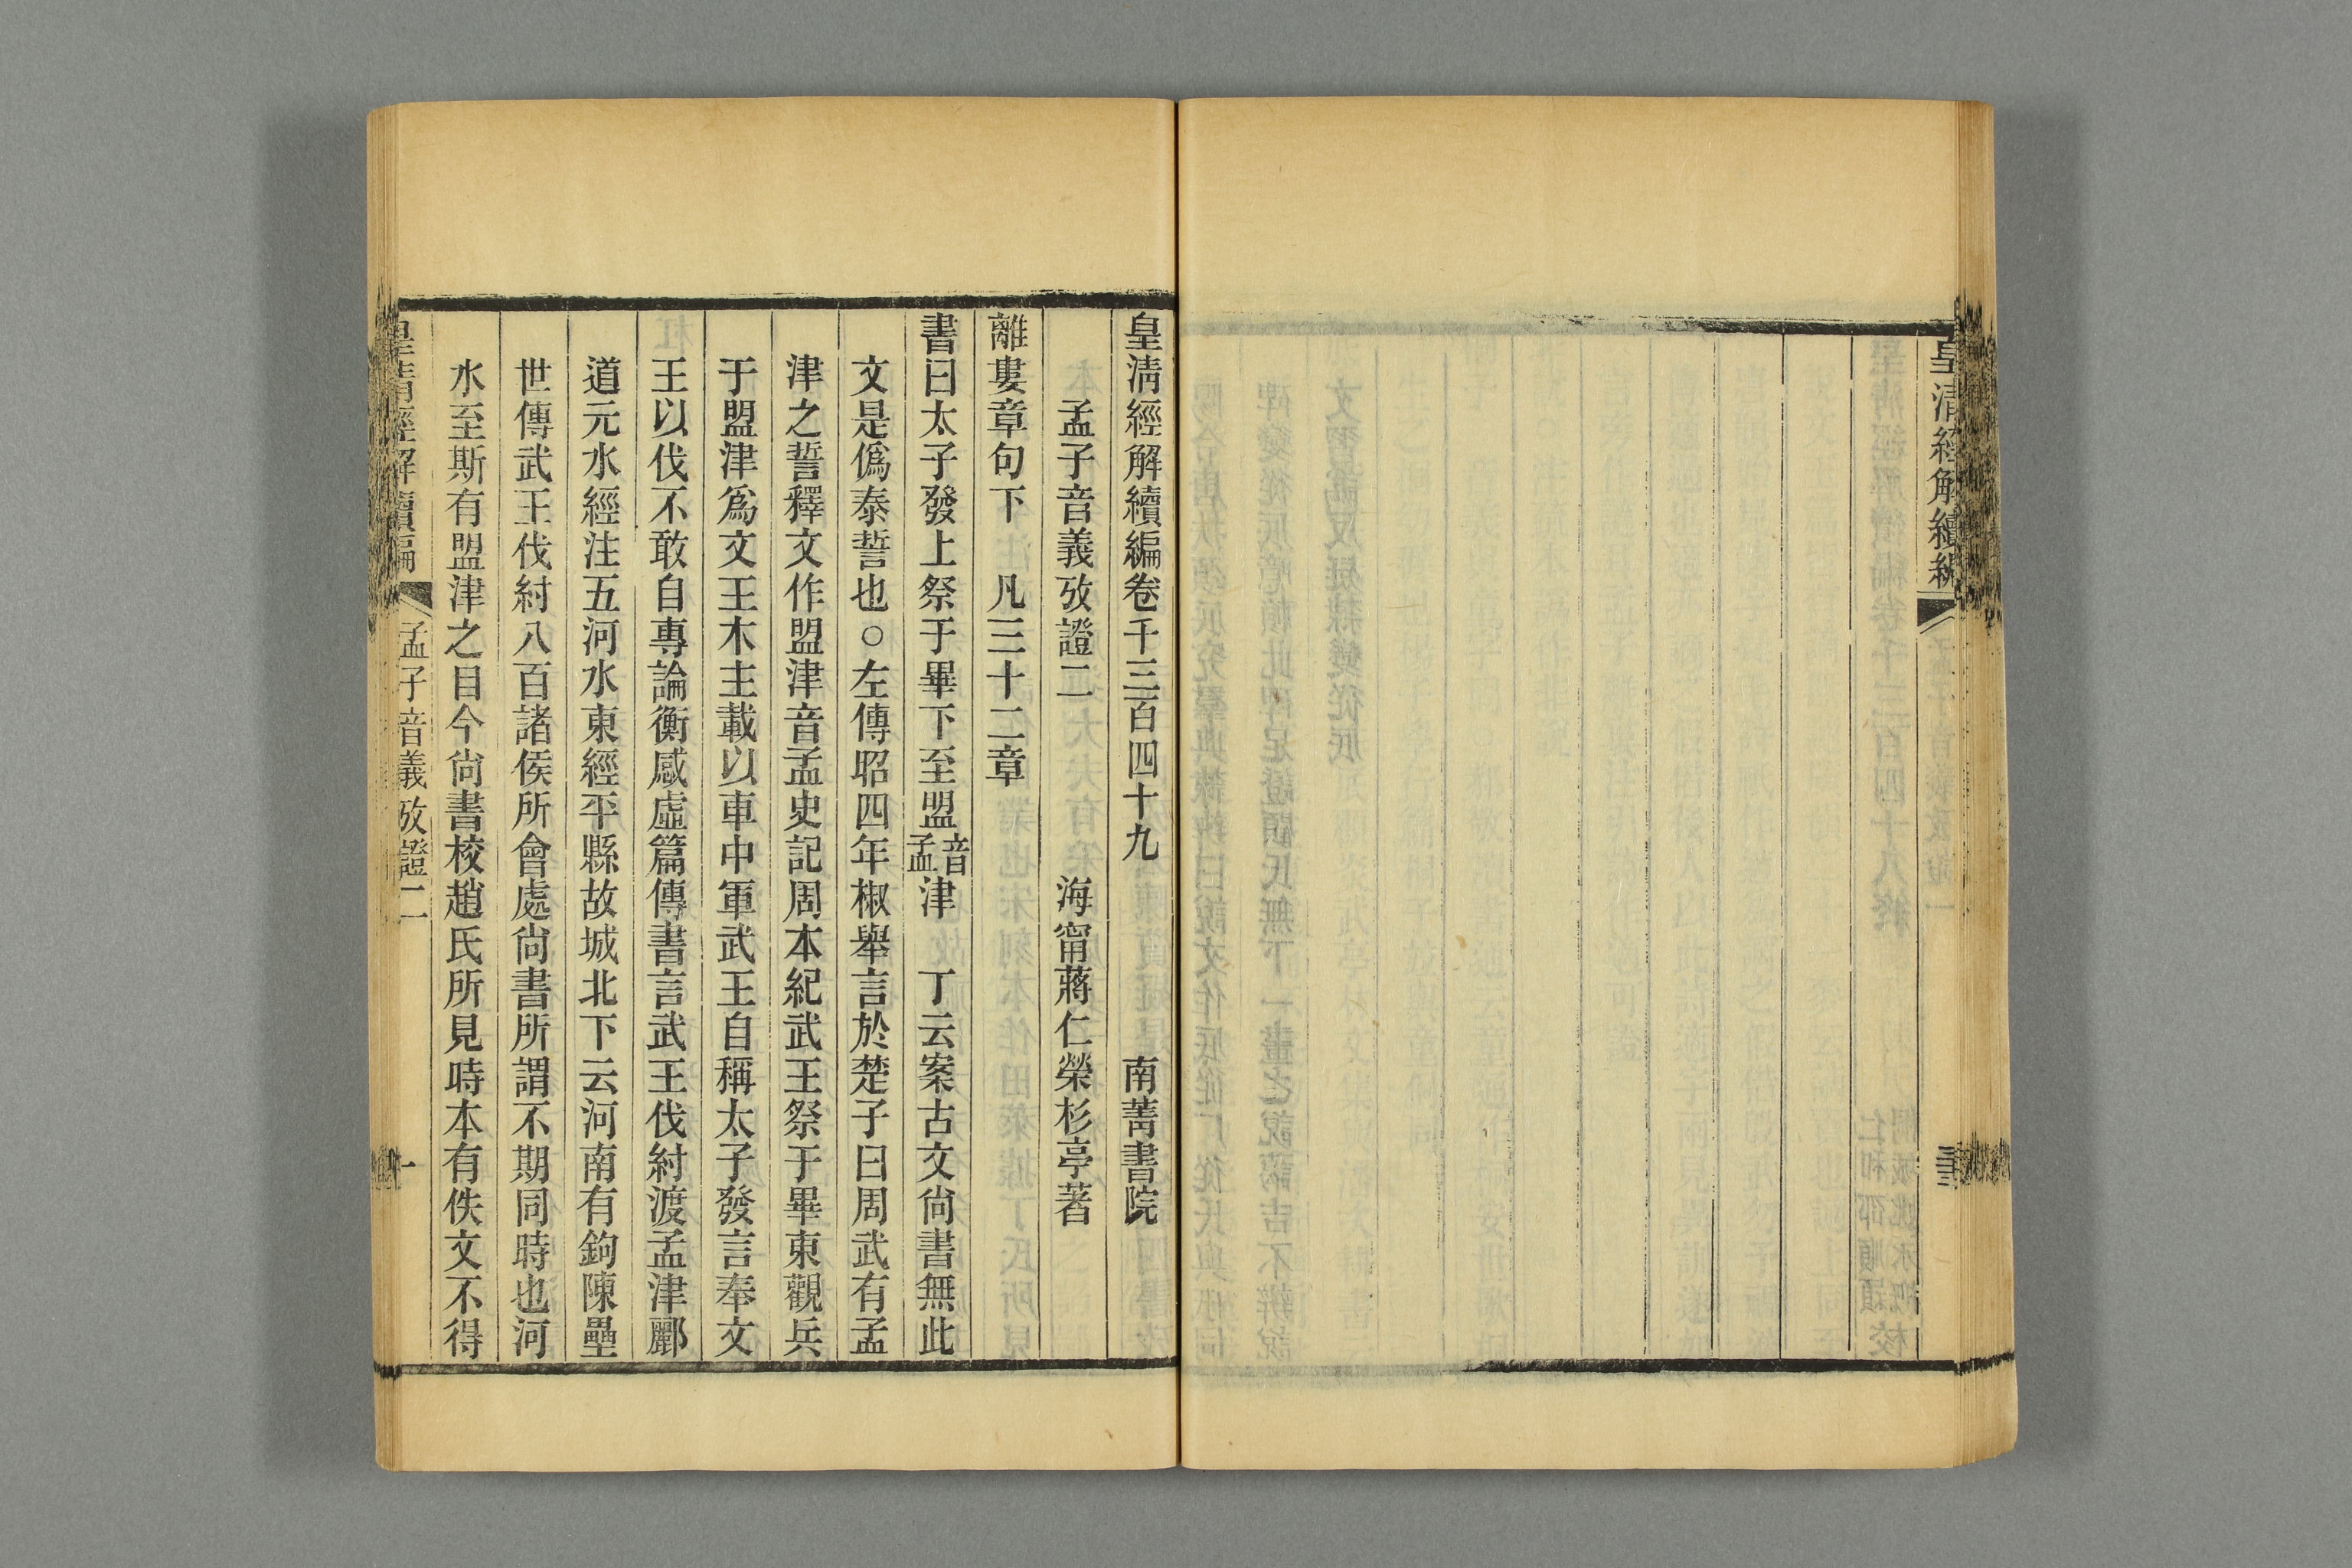 皇清經解續編
皇清經解續編卷千三百四十九 南菁書院
孟子音義攷證二 海甯蔣仁榮杉亭著
離婁章句下 凡三十二章
書曰太子發上祭于畢下至盟音孟津 丁云案古文尙書無此
文是僞泰誓也○左傳昭四年椒舉言於楚子曰周武有孟
津之誓釋文作盟津音孟史記周本紀武王祭于畢東觀兵
于盟津爲文王木主載以車中軍武王自稱太子發言奉文
王以伐不敢自專論衡感虛篇傳書言武王伐紂渡孟津酈
道元水經注五河水東經平縣故城北下云河南有鉤陳壘
世傳武王伐紂八百諸侯所會處尙書所謂不期同時也河
水至斯有盟津之目今尙書校趙氏所見時本有佚文不得
皇清經解續編 孟子音義攷證二 一